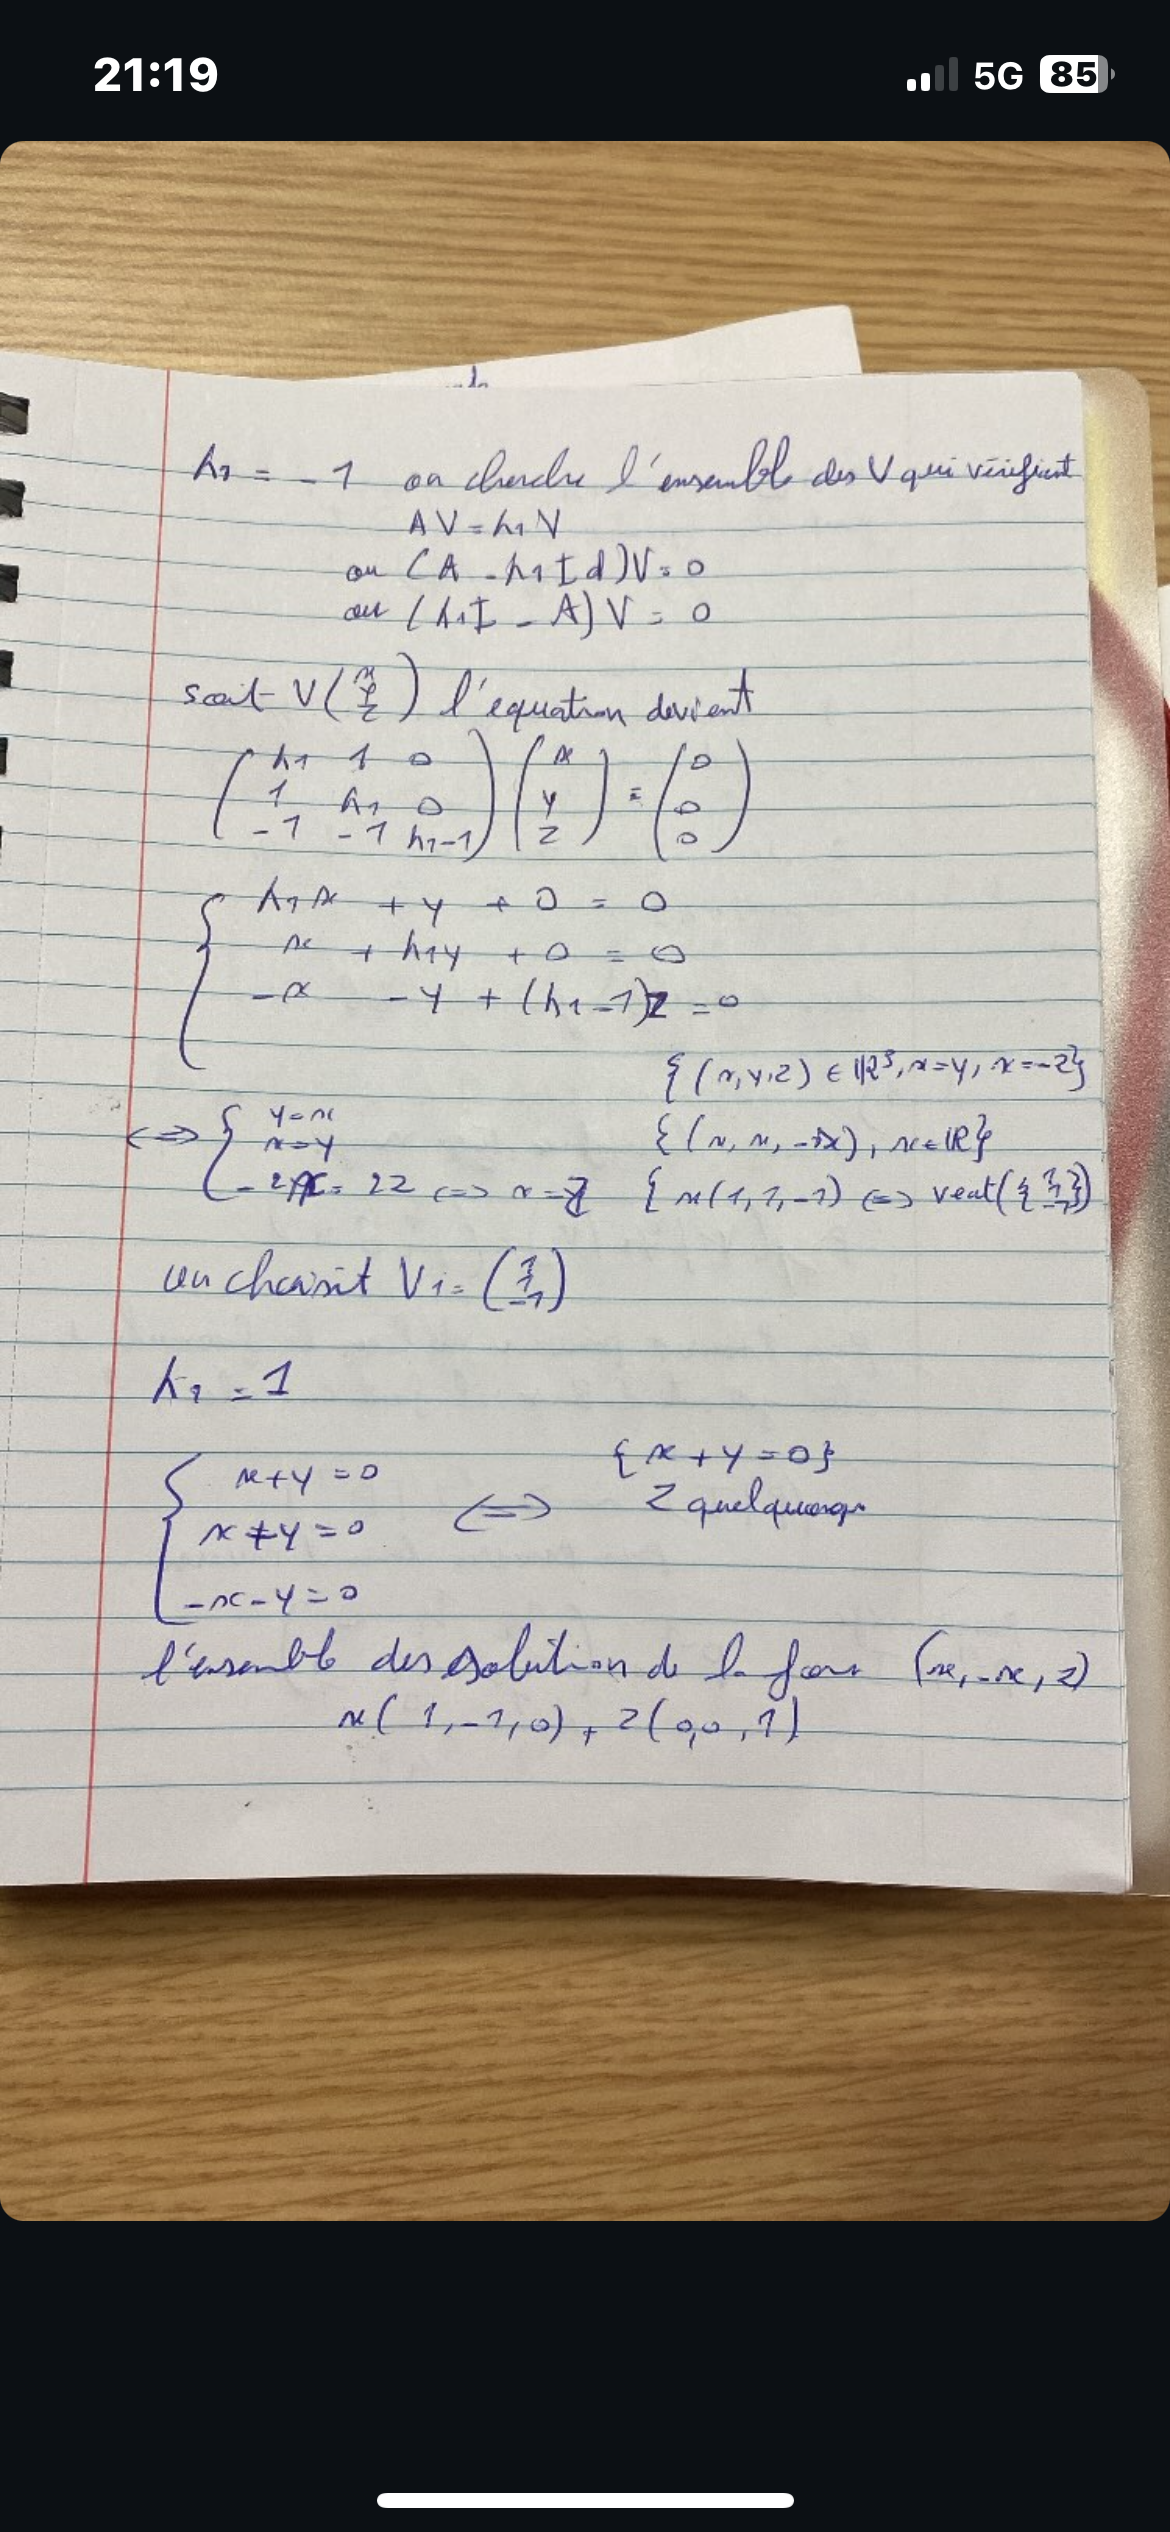 21:19
5G 85
λ1 = -1 on cherche l'ensemble des V qui vérifient
AV = λ1V
ou (A - λ1Id)V = 0
ou (λ1I - A)V = 0
soit V(x y z) l'équation devient
(λ1 1 0) (x) = (0)
(1 λ1 0) (y) (0)
(-1 -1 λ1-1) (z) (0)
{ λ1x + y + 0 = 0
x + λ1y + 0 = 0
-x - y + (λ1-1)z = 0
{(x,y,z) ∈ ℝ³, x=y, x=-z}
⇔ { y=x
x=y
-2x = 2z ⇔ x=-z
{(x, x, -x), x∈ℝ}
{x(1,1,-1) ⇔ vect({1 1 -1})
on choisit V1 = (1 1 -1)
λ1 = 1
{ x+y=0
x+y=0
-x-y=0
⇔ {x+y=0}
z quelquonqe
l'ensemble des solution de la (x,-x,z)
x(1,-1,0) + z(0,0,1)